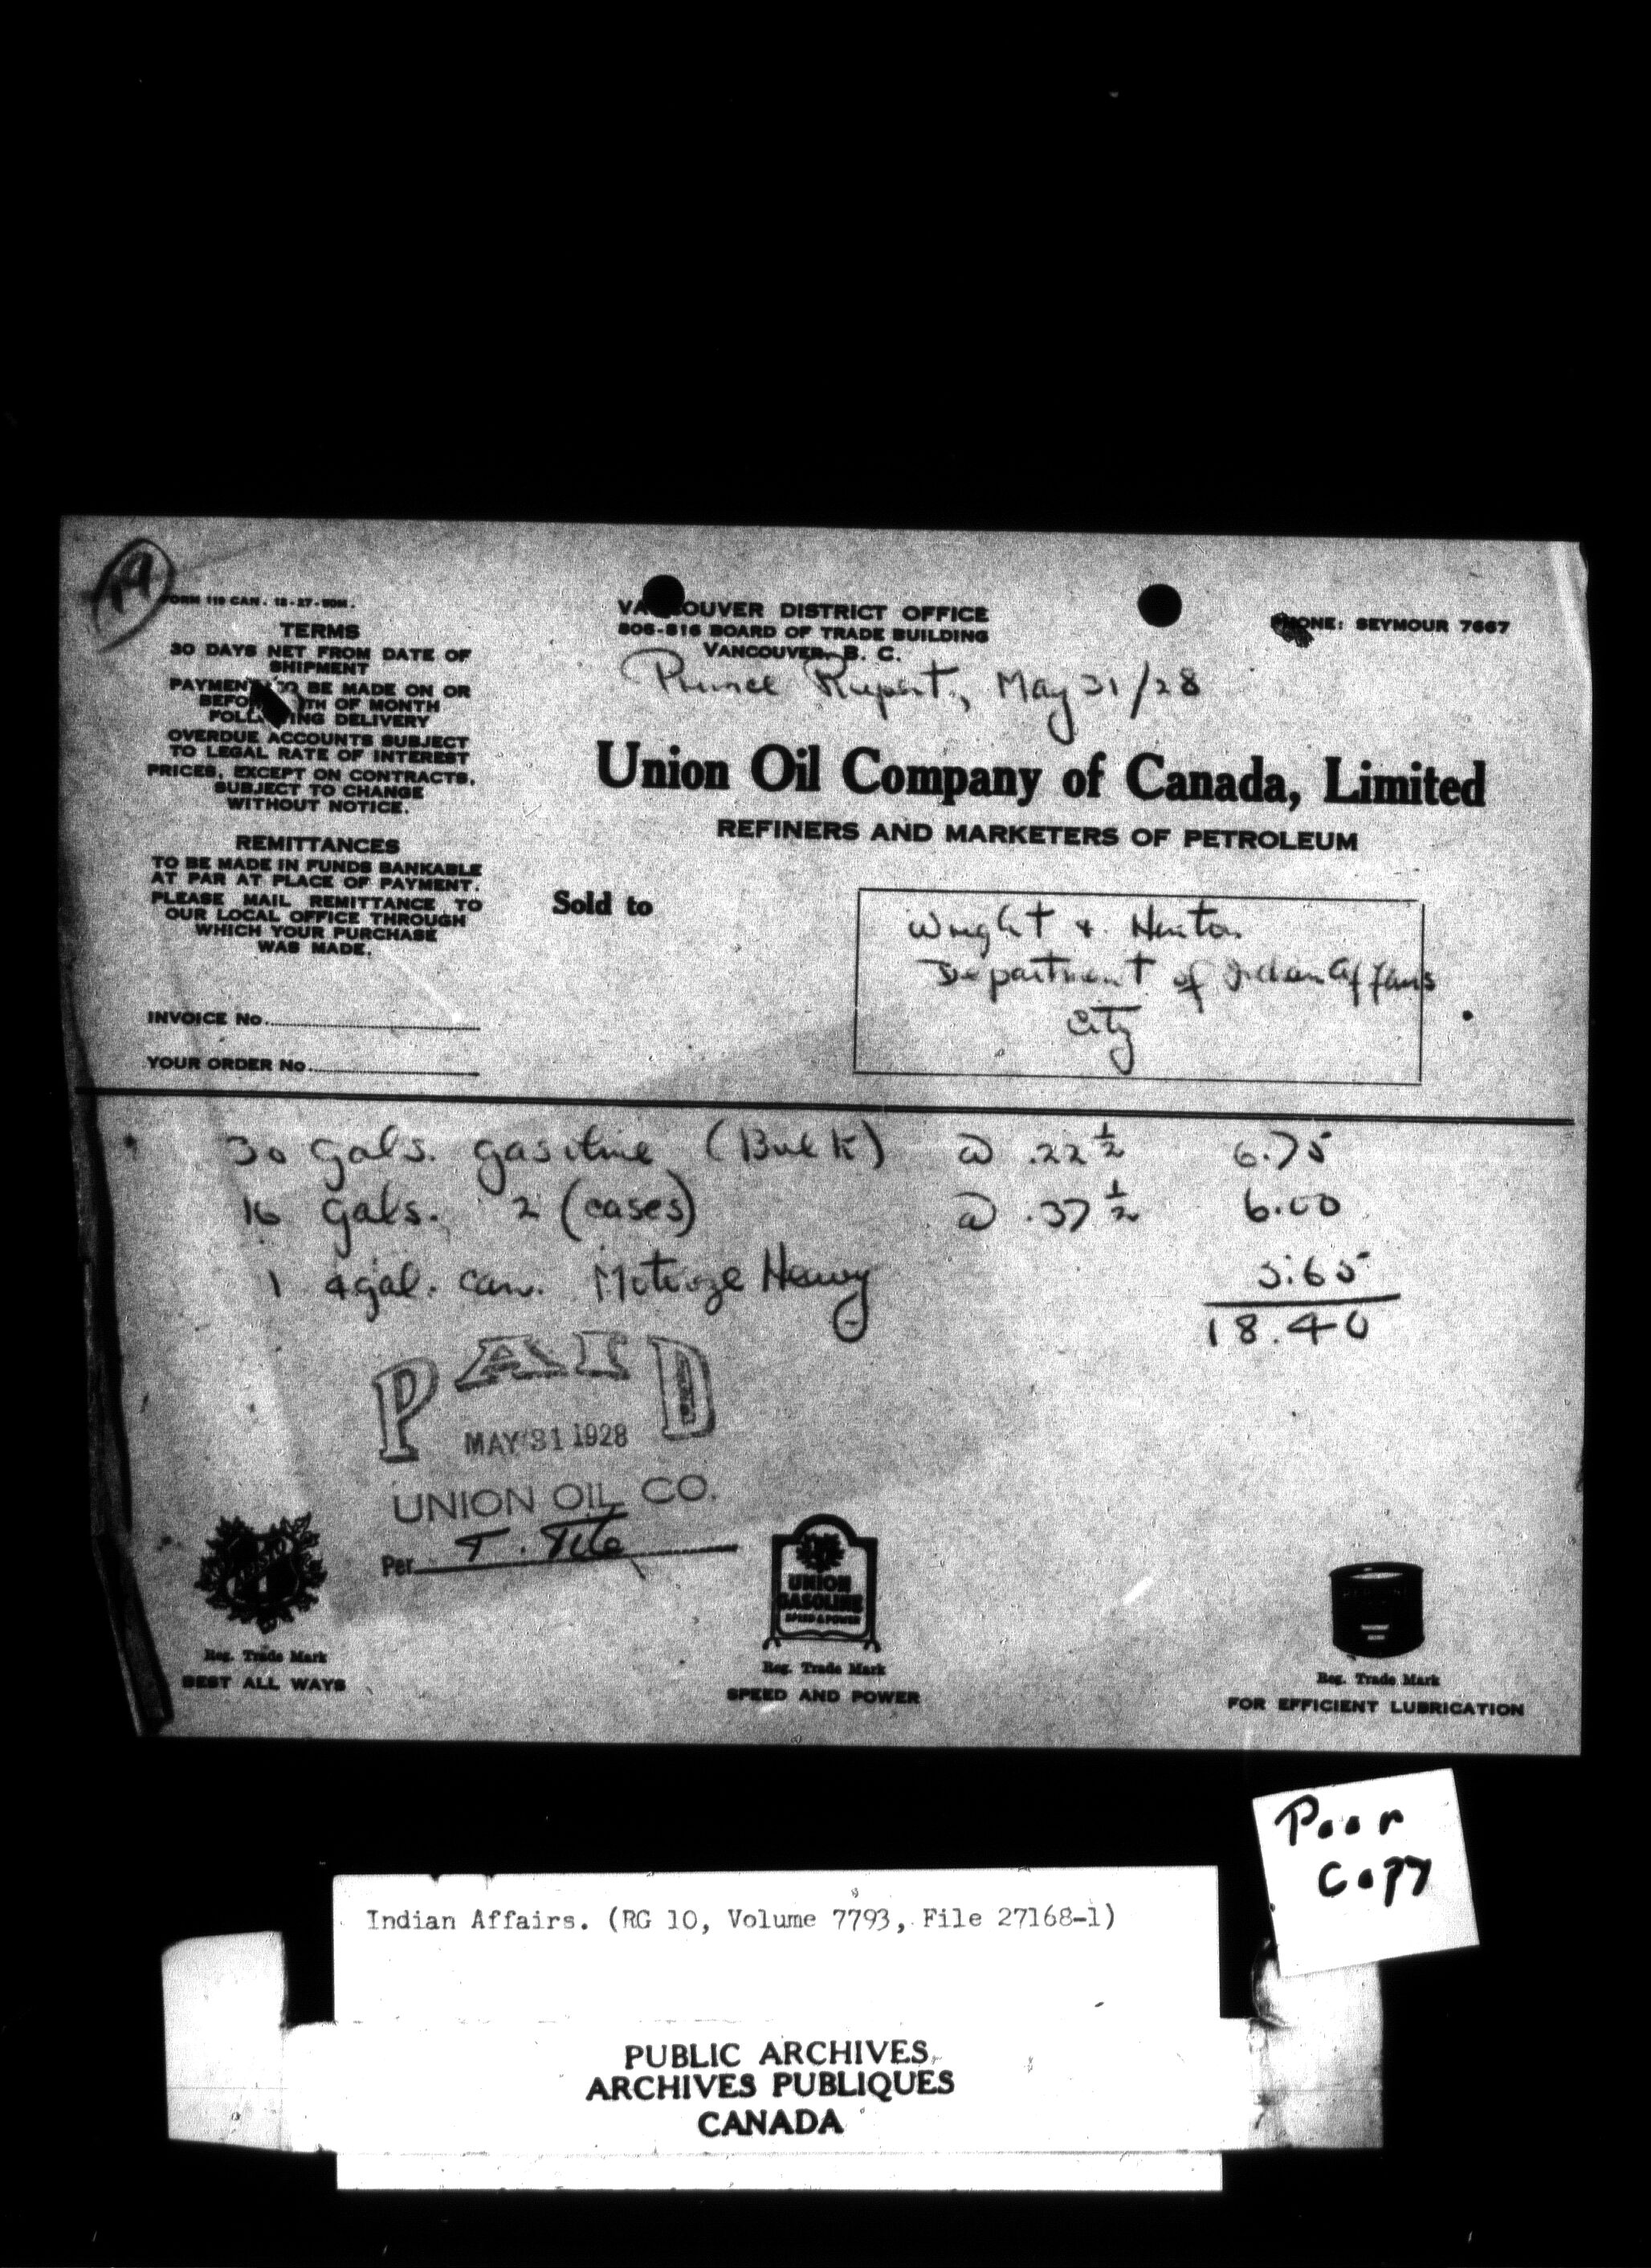 19
FORM 110 CAN. 12-27-50M.
TERMS
30 DAYS NET FROM DATE OF
SHIPMENT
PAYMENT TO BE MADE ON OR
BEFORE TH OF MONTH
FOLLOWING DELIVERY
OVERDUE ACCOUNTS SUBJECT
TO LEGAL RATE OF INTEREST
PRICES, EXCEPT ON CONTRACTS,
SUBJECT TO CHANGE
WITHOUT NOTICE.
REMITTANCES
TO BE MADE IN FUNDS BANKABLE
AT PAR AT PLACE OF PAYMENT.
PLEASE MAIL REMITTANCE TO
OUR LOCAL OFFICE THROUGH
WHICH YOUR PURCHASE
WAS MADE.
INVOICE No.
YOUR ORDER No.
VANCOUVER DISTRICT OFFICE
BOARD OF TRADE BUILDING
VANCOUVER, B. C.
PHONE: SEYMOUR 7667
Prince Rupert, May 31/28
Union Oil Company of Canada, Limited
REFINERS AND MARKETERS OF PETROLEUM
Sold to
Wright &
Department of Indian Affairs
City
30 gals. gasoline (Bulk) @ .22½ 6.75
16 gals. 2 (cases) @ .37½ 6.00
1 4 gal. can. Heavy 5.65
18.40
PAID
MAY 31 1928
UNION OIL CO.
Per T.
Reg. Trade Mark
BEST ALL WAYS
UNION
GASOLINE
SPEED & POWER
Reg. Trade Mark
SPEED AND POWER
Reg. Trade Mark
FOR EFFICIENT LUBRICATION
Poor
Copy
Indian Affairs. (RG 10, Volume 7793, File 27168-1)
PUBLIC ARCHIVES
ARCHIVES PUBLIQUES
CANADA